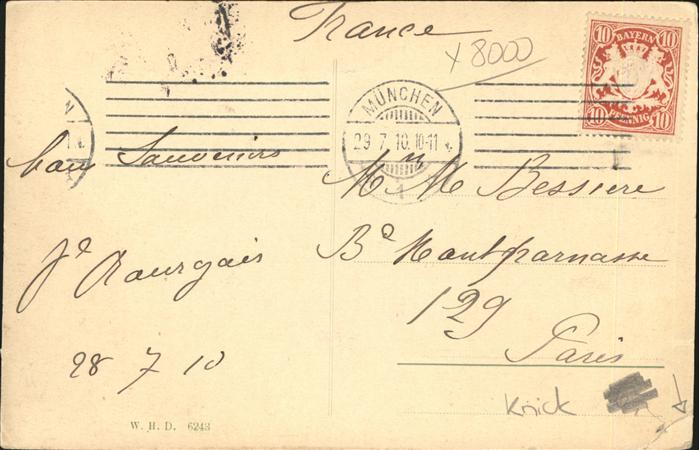 France
x 8000
10 BAYERN 10
10 PFENNIG 10
MÜNCHEN
29 7. 10. 10-11 V.
1
bons Souvenirs
28 7 10
Mr M Bessiere
Bd Montparnasse
129
Paris
Knick
W. H. D. 6243